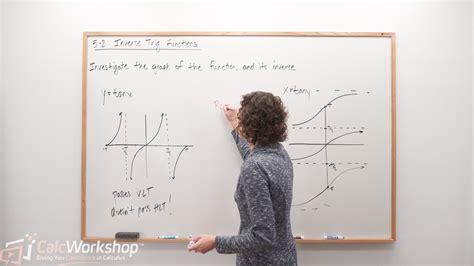 5-2: Inverse Trig Functions
Investigate the graph of the function and its inverse
y=tanx
x=tany
passes VLT
doesn't pass HLT!
CalcWorkshop™
Giving You Confidence in Calculus